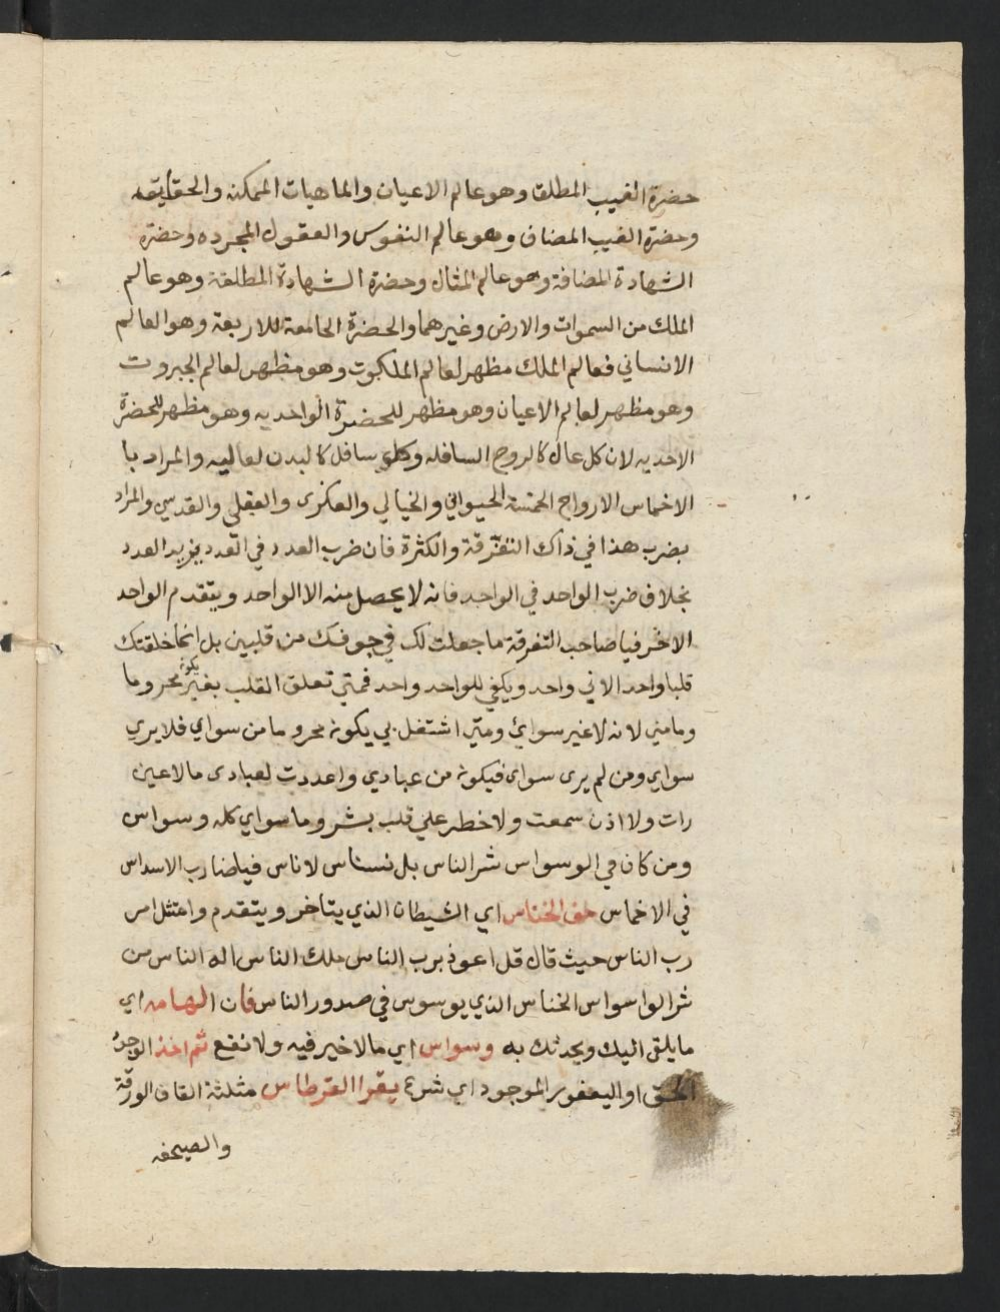 حضرة الغيب المطلقا وهو عالم الاعيان والماهيات الممكنه والحقايقه
وحضرة الغيب المضاف وهو عالم النفوس والعقول المجرده وحضرة
الشهادة المضافة وهو عالم المثال وحضرة الشهادة المطلقة وهو عالم
الملك من السموات والارض وغيرهما والحضرة الجامعة للاربعة وهو العالم
الانساني فعالم الملك مظهر لعالم الملكوت وهو مظهر لعالم الجبروت
وهو مظهر لعالم الاعيان وهو مظهر للحضرة الواحديه وهو مظهر للحضرة
الاحديه لان كل عال كالروح السافله وكل سافل كالبدن لعاليه والمراد با
الاخماس الارواح الخمسة الحيواني والخيالي والفكرى والعقلي والقدسي والمراد
بضرب هذا في ذاك التفرقة والكثرة فان ضرب العدد في العدد يزيد العدد
بخلاف ضرب الواحد في الواحد فانه لا يحصل منه الا الواحد ويتقدم الواحد
الاخر فيا صاحب التفرقة ما جعلت لك في جوفك من قلبين بل انما خلقتك
قلبا واحد الاني واحد ويكفي للواحد واحد فمتي تعلق القلب بغيري يكون محروما
ومامني لانه لا غير سواي ومتي اشتغل بي يكون محروما من سواي فلا يري
سواي ومن لم يرى سواى فيكون من عبادي واعددت لعبادى ما لا عين
رات ولا اذن سمعت ولا خطر علي قلب بشر وما سواي كله وسواس
ومن كان في الوسواس شر الناس بل نسناس لا ناس فيا ضارب الاسداس
في الاخماس خف الخناس اي الشيطان الذي يتاخر ويتقدم وامتثل امر
رب الناس حيث قال قل اعوذ برب الناس ملك الناس اله الناس من
شر الواسواس الخناس الذي يوسوس في صدور الناس فان الهامه اي
ما يلقى اليك ويحدثك به وسواس اي ما لا خير فيه ولا نفع ثم اخذ الوجود
الحق او اليعفور الموجود اي شرع يقرا القرطاس مثلثة القاف الورقة
والصيحفه